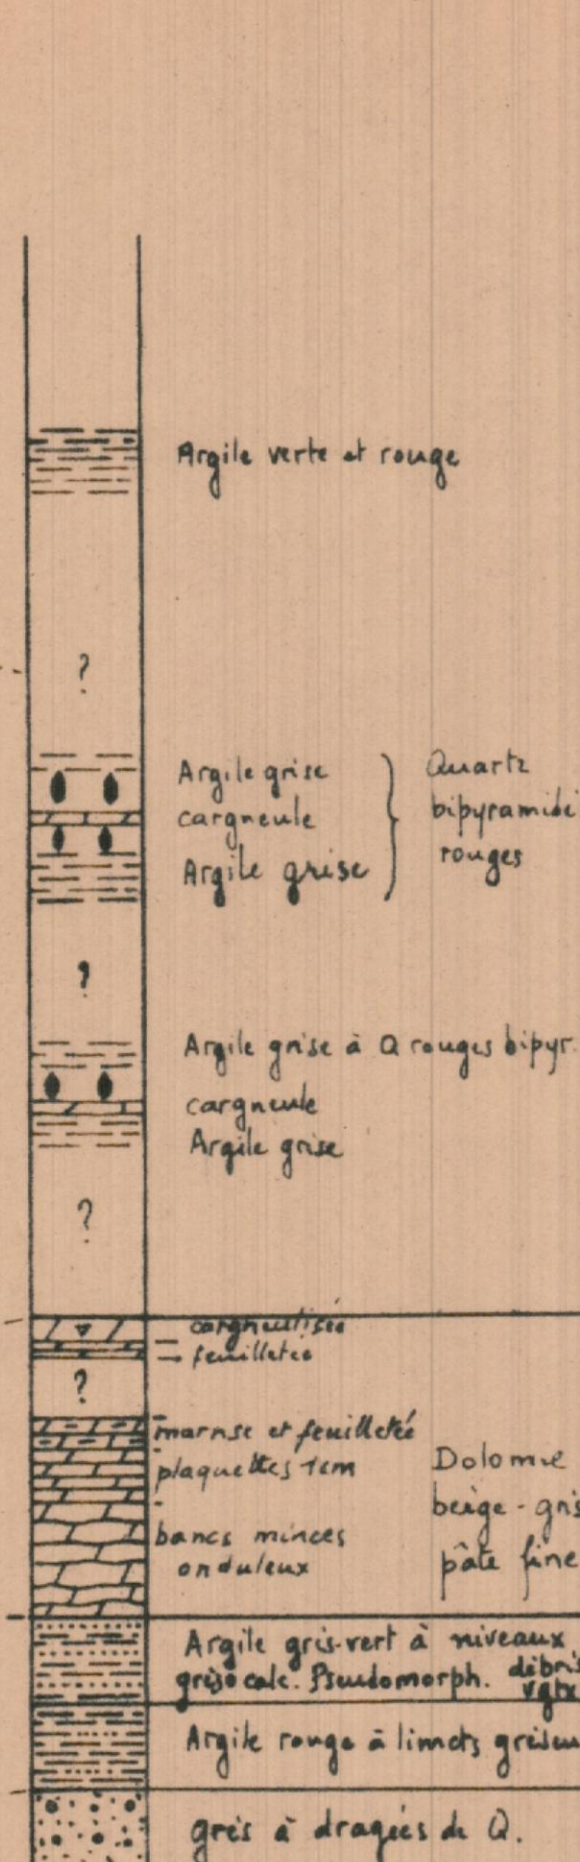 Argile verte et rouge
?
Argile grise
cargneule
Argile grise
Quartz
bipyramidé
rouges
?
Argile grise à Q rouges bipyr.
cargneule
Argile grise
?
cargneulisée
feuilletée
?
marnse et feuilleté
plaquettes 1cm
bancs minces
onduleux
Dolomie
beige-gris
pâte fine
Argile gris-vert à niveaux
gréso calc. Pseudomorph. débris
vgtx
Argile rouge à limets gréseu
grès à dragées de Q.